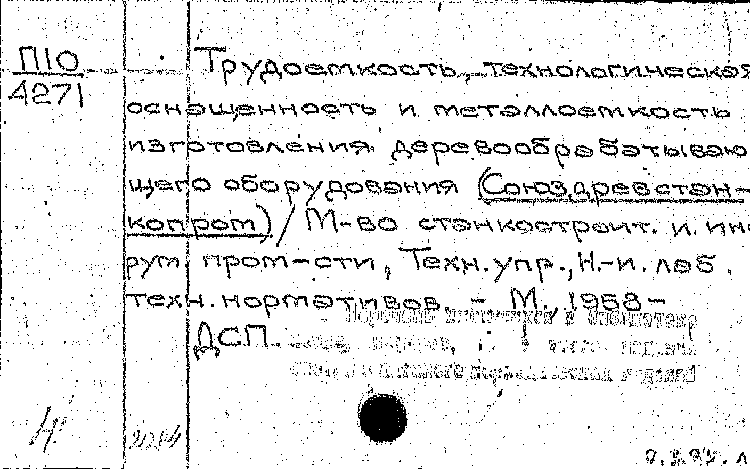 П10
4271
Трудоемкость, технологическая
оснащенность и металлоемкость
изготовления деревообрабатываю-
щего оборудования (Союздревстан-
копром) / М-во станкостроит. и инст
рум. пром-сти, Техн. упр., Н.-и. лаб.
техн. нормативов. - М., 1968-
ДСП.